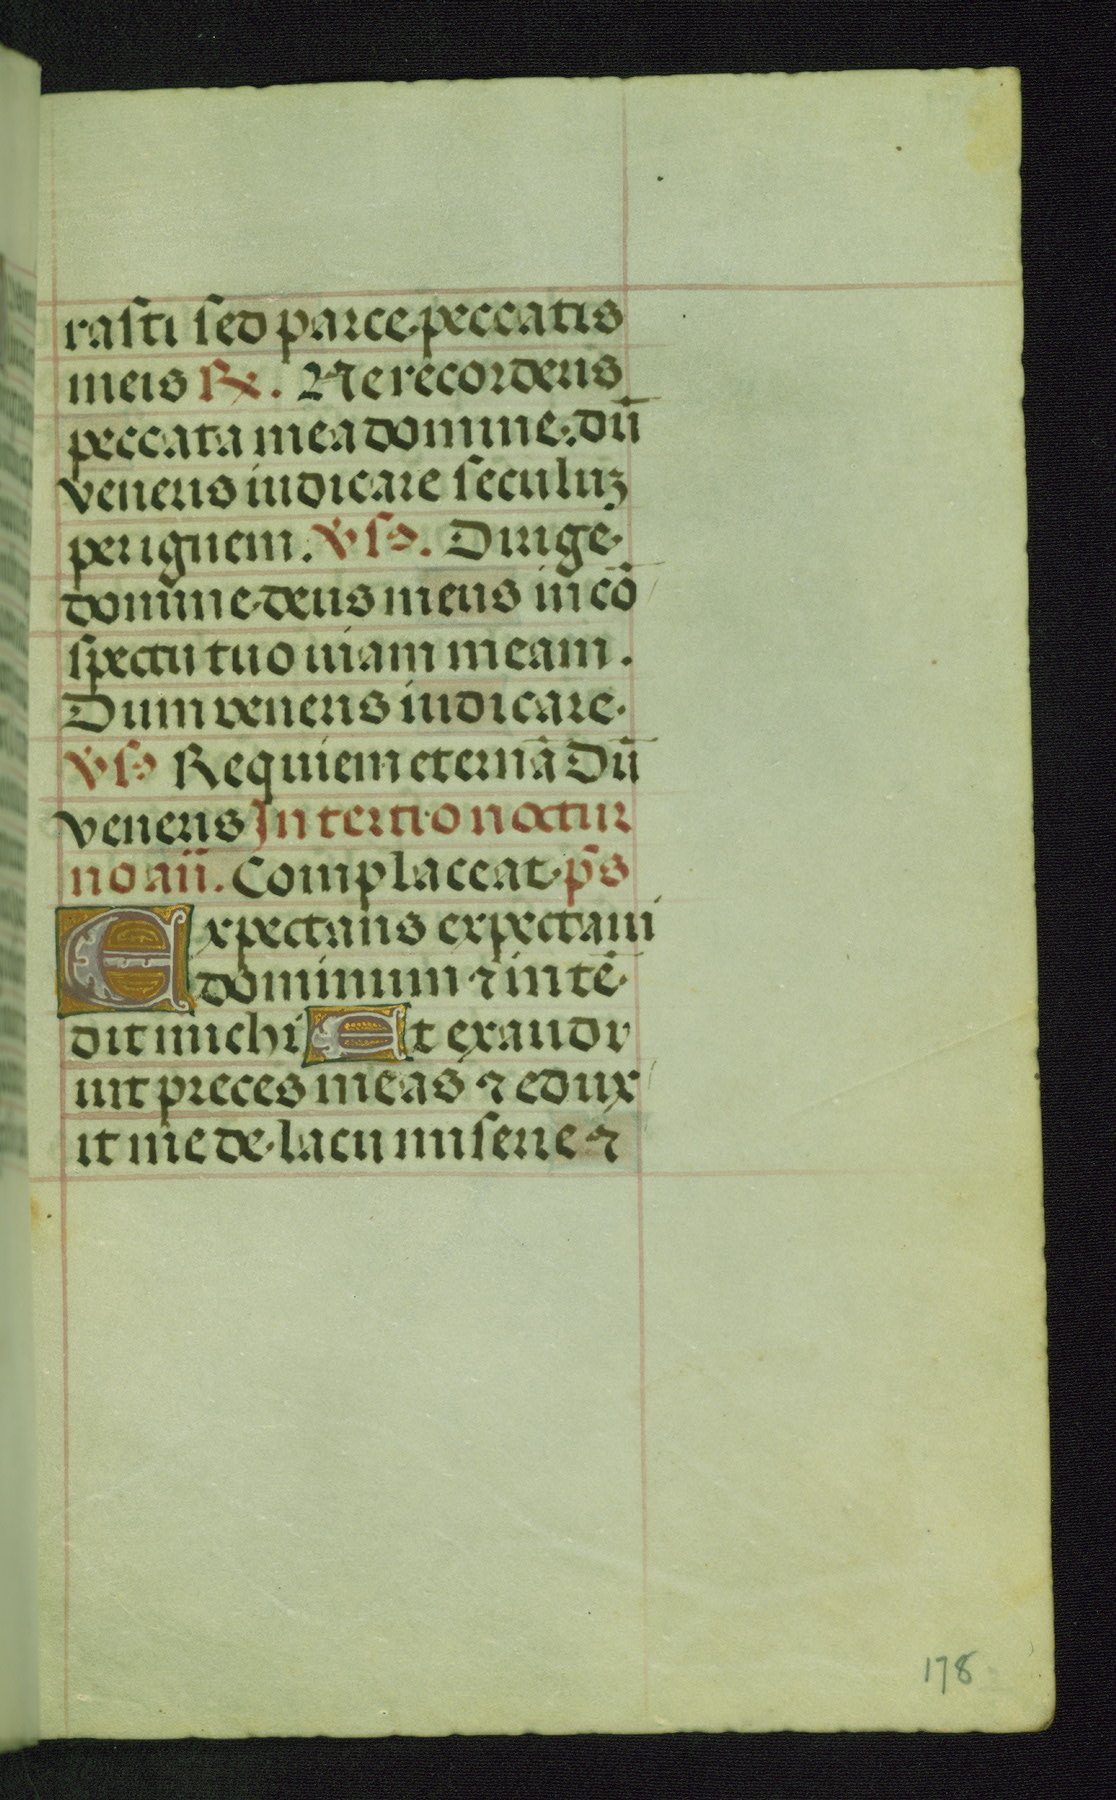 rasti sed parce peccatis
meis R. Ne recorderis
peccata mea domine. dū
veneris iudicare seculuꝫ
per ignem. vs. Dirige
domine deus meus in cō
spectu tuo uiam meam.
Dum veneris iudicare.
vs Requiem eternā Dū
veneris In tertio noctur
no añ. Complaceat. ps
Expectans expectaui
dominum ⁊ intē
dit michi Et exaudi
uit preces meas ⁊ edux
it me de lacu miserie ⁊
178